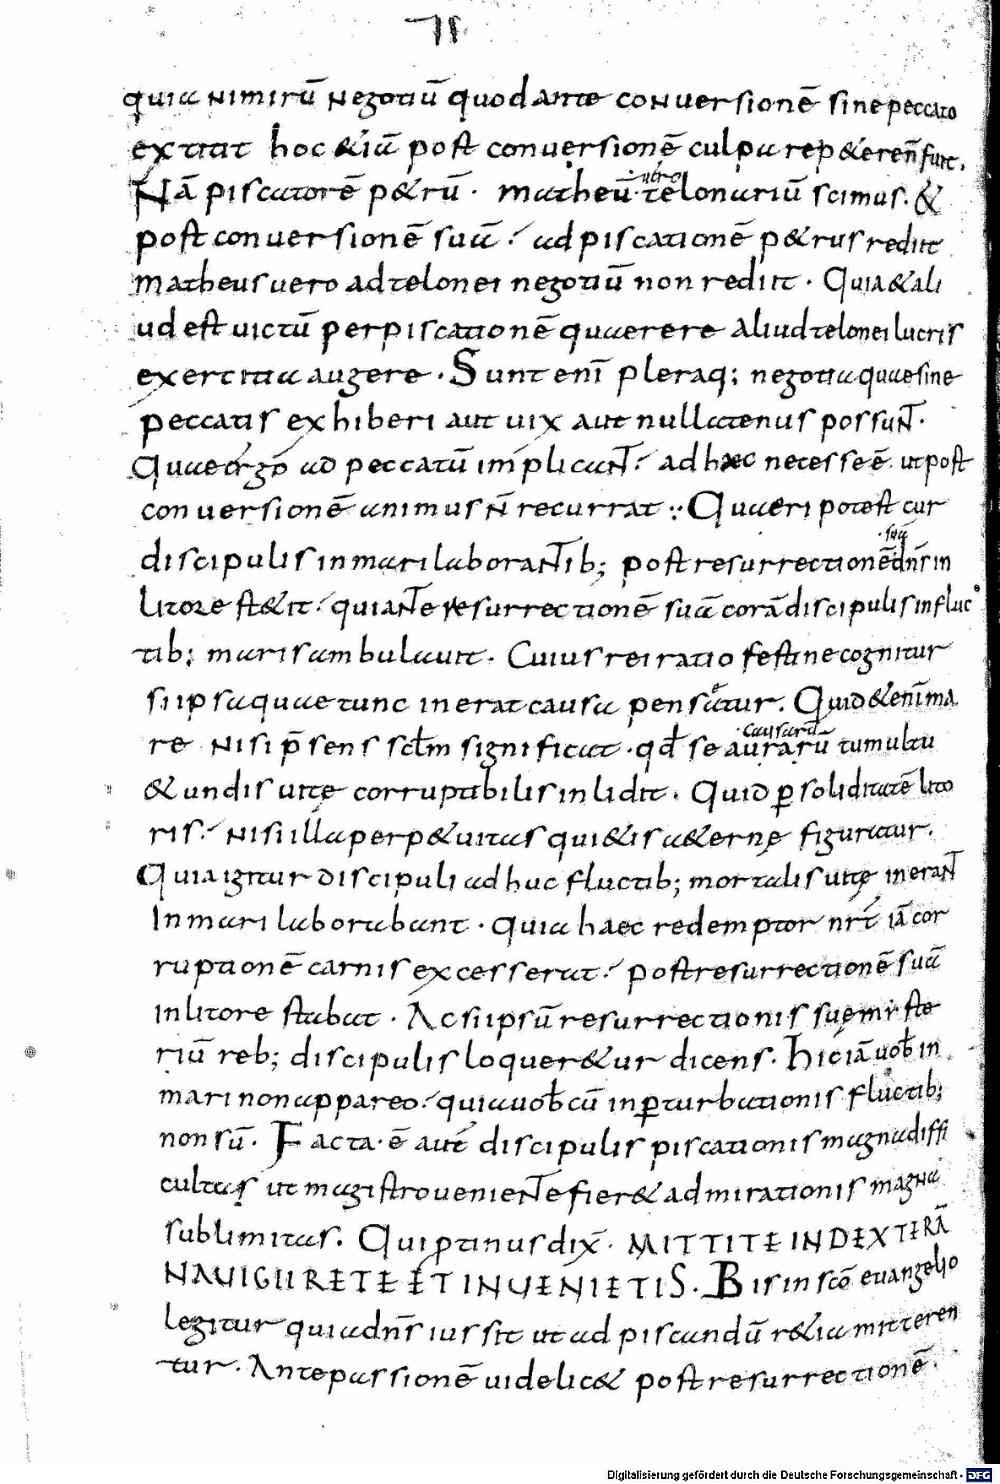 quia nimirū negotiū quod ante conuersionē sine peccato
extitit hoc &iā post conuersionē culpa rep&eren̄ fuit.
Nā piscatorē p&rū · matheū · uero telonariū scimus. &
post conuersionē suā ad piscationē p&rus rediit
matheus uero ad telonei negotiū non rediit · Quia & ali
ud est uictū per piscationē quaerere aliud telonei lucris
exercitia augere · Sunt enī pleraq; negotia quae sine
peccatis exhiberi aut uix aut nullatenus possunt ·
Quae ergo ad peccatū implicant ad haec necesse ē ut post
conuersionē animus n̄ recurrat · Quaeri potest cur
discipulis in mari laborantib; post resurrectionē suā dn̄s in
litore st&it quia ante resurrectionē suā corā discipulis in fluc
tib; maris ambulauit · Cuius rei ratio festine cognitur
si ipsa quae tunc inerat causa pensetur. Quid &enī ma
re nisi p̄sens sclm̄ significat · qđ se causarū aurarū tumultu
& undis uitę corruptibilis inlidit · Quid p soliditatē lito
ris nisi illa perp&uitas qui&is a&ernę figuratur.
Quia igitur discipuli adhuc fluctib; mortalis uitę inerant
In mari laborabant · quia haec redemptor nr̄t iā cor
ruptionē carnis excesserat post resurrectionē suā
in litore stabat · Ac si ipsū resurrectionis suę miste
riū reb; discipulis loquer&ur dicens · Hic iā uob in
mari non appareo quia uob cū in pturbationis fluctib;
non sū · Facta · ē aut̄ discipulis piscationis magna diffi
cultas ut magistro ueniente fier& admirationis magna
sublimitas. Qui ptinus dix̄ · MITTITE IN DEXTERĀ
NAUIGII RETE ET INUENIETIS · Bis in scō euangelio
legitur quia dn̄s iussit ut ad piscandū r&ia mitteren
tur · Ante passionē uidelic& post resurrectionē ·
Digitalisierung gefördert durch die Deutsche Forschungsgemeinschaft - DFG